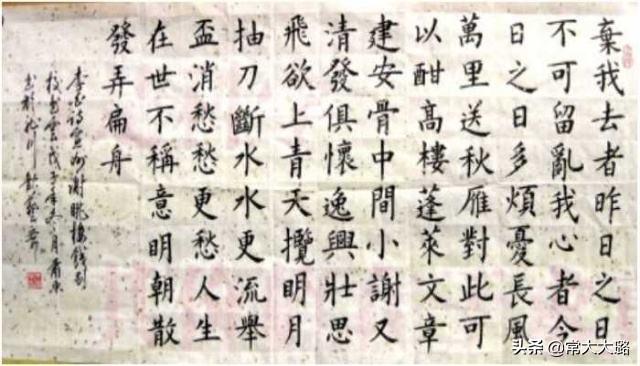 棄我去者昨日之日
不可留亂我心者今
日之日多煩憂長風
萬里送秋雁對此可
以酣高樓蓬萊文章
建安骨中間小謝又
清發俱懷逸興壯思
飛欲上青天攬明月
抽刀斷水水更流舉
盃消愁愁更愁人生
在世不稱意明朝散
發弄扁舟
李白詩宣州謝朓樓餞別
校書雲戊子年冬月
書於
头条 @常大大路